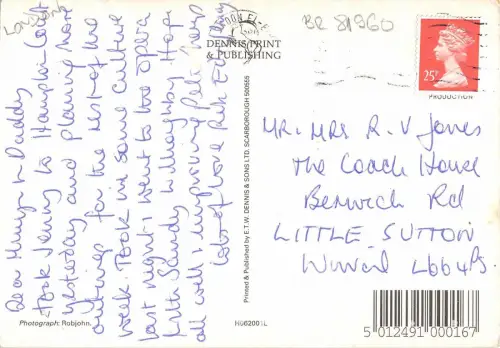 Dear Mummy & Daddy
took Jenny to Hampton Court
yesterday and planning more
outings for the rest of the
week. Took in some culture
last night & went to the opera
with Sandy Willoughby. Hope
all well & improving Pete news
lots of love
DENNIS PRINT
& PUBLISHING
BR 81960
25P
PRODUCTION
MR. MRS R. V Jones
The Coach House
Berwick Rd
LITTLE SUTTON
Wirral L66 4PS
Printed & Published by E.T.W. DENNIS & SONS LTD. SCARBOROUGH 500555
Photograph: Robjohn.
H062001L
5 012491 000167